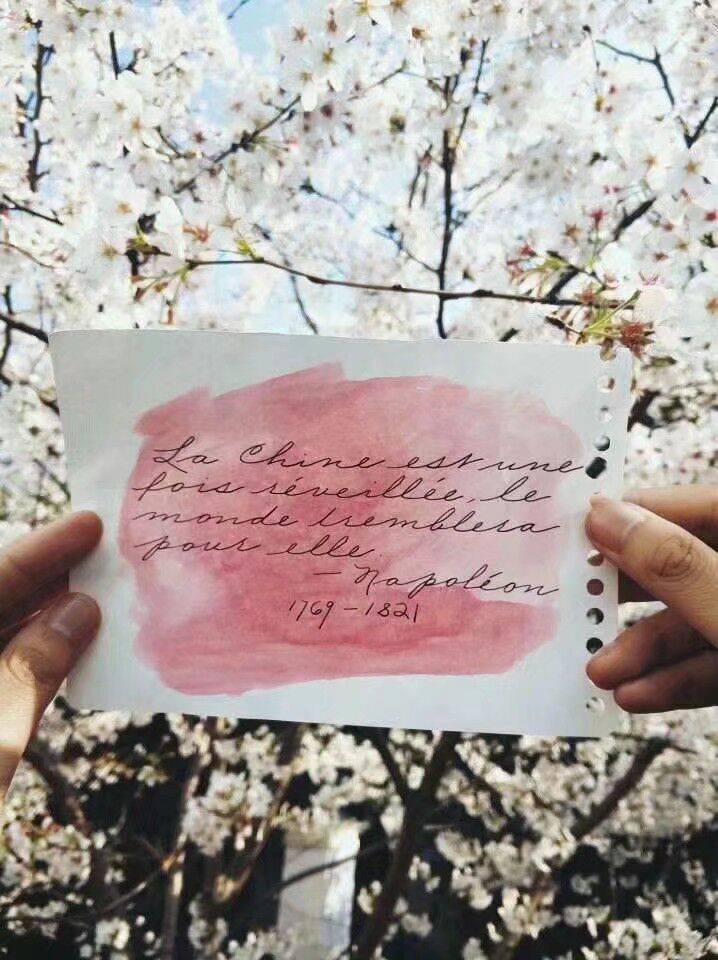 La Chine est une
fois réveillée, le
monde tremblera
pour elle.
— Napoléon
1769 – 1821